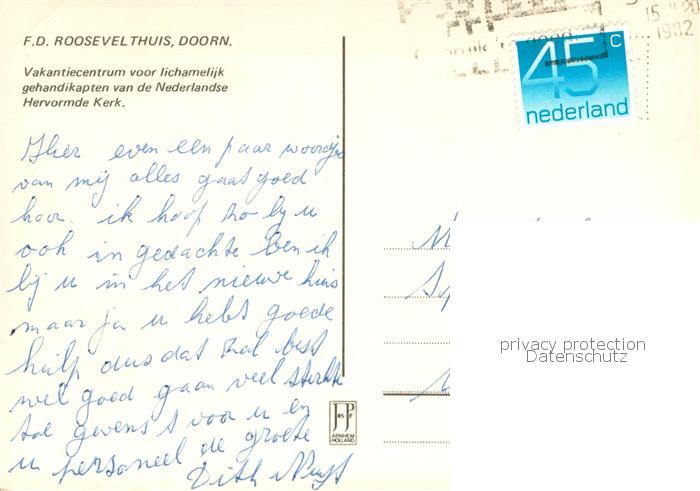 F.D. ROOSEVELTHUIS, DOORN.
Vakantiecentrum voor lichamelijk
gehandikapten van de Nederlandse
Hervormde Kerk.
Hier even een paar woordje
van mij alles gaat goed
hoor. ik hoop zo bij u
ook in gedachte ben ik
bij u in het nieuwe huis
maar ja u hebt goede
hulp dus dat zal best
wel goed gaan veel sterkte
toe gewenst voor u en
u personeel de groete
15 II 20
1982
45 c
nederland
privacy protection
Datenschutz
JosPé
ARNHEM
HOLLAND